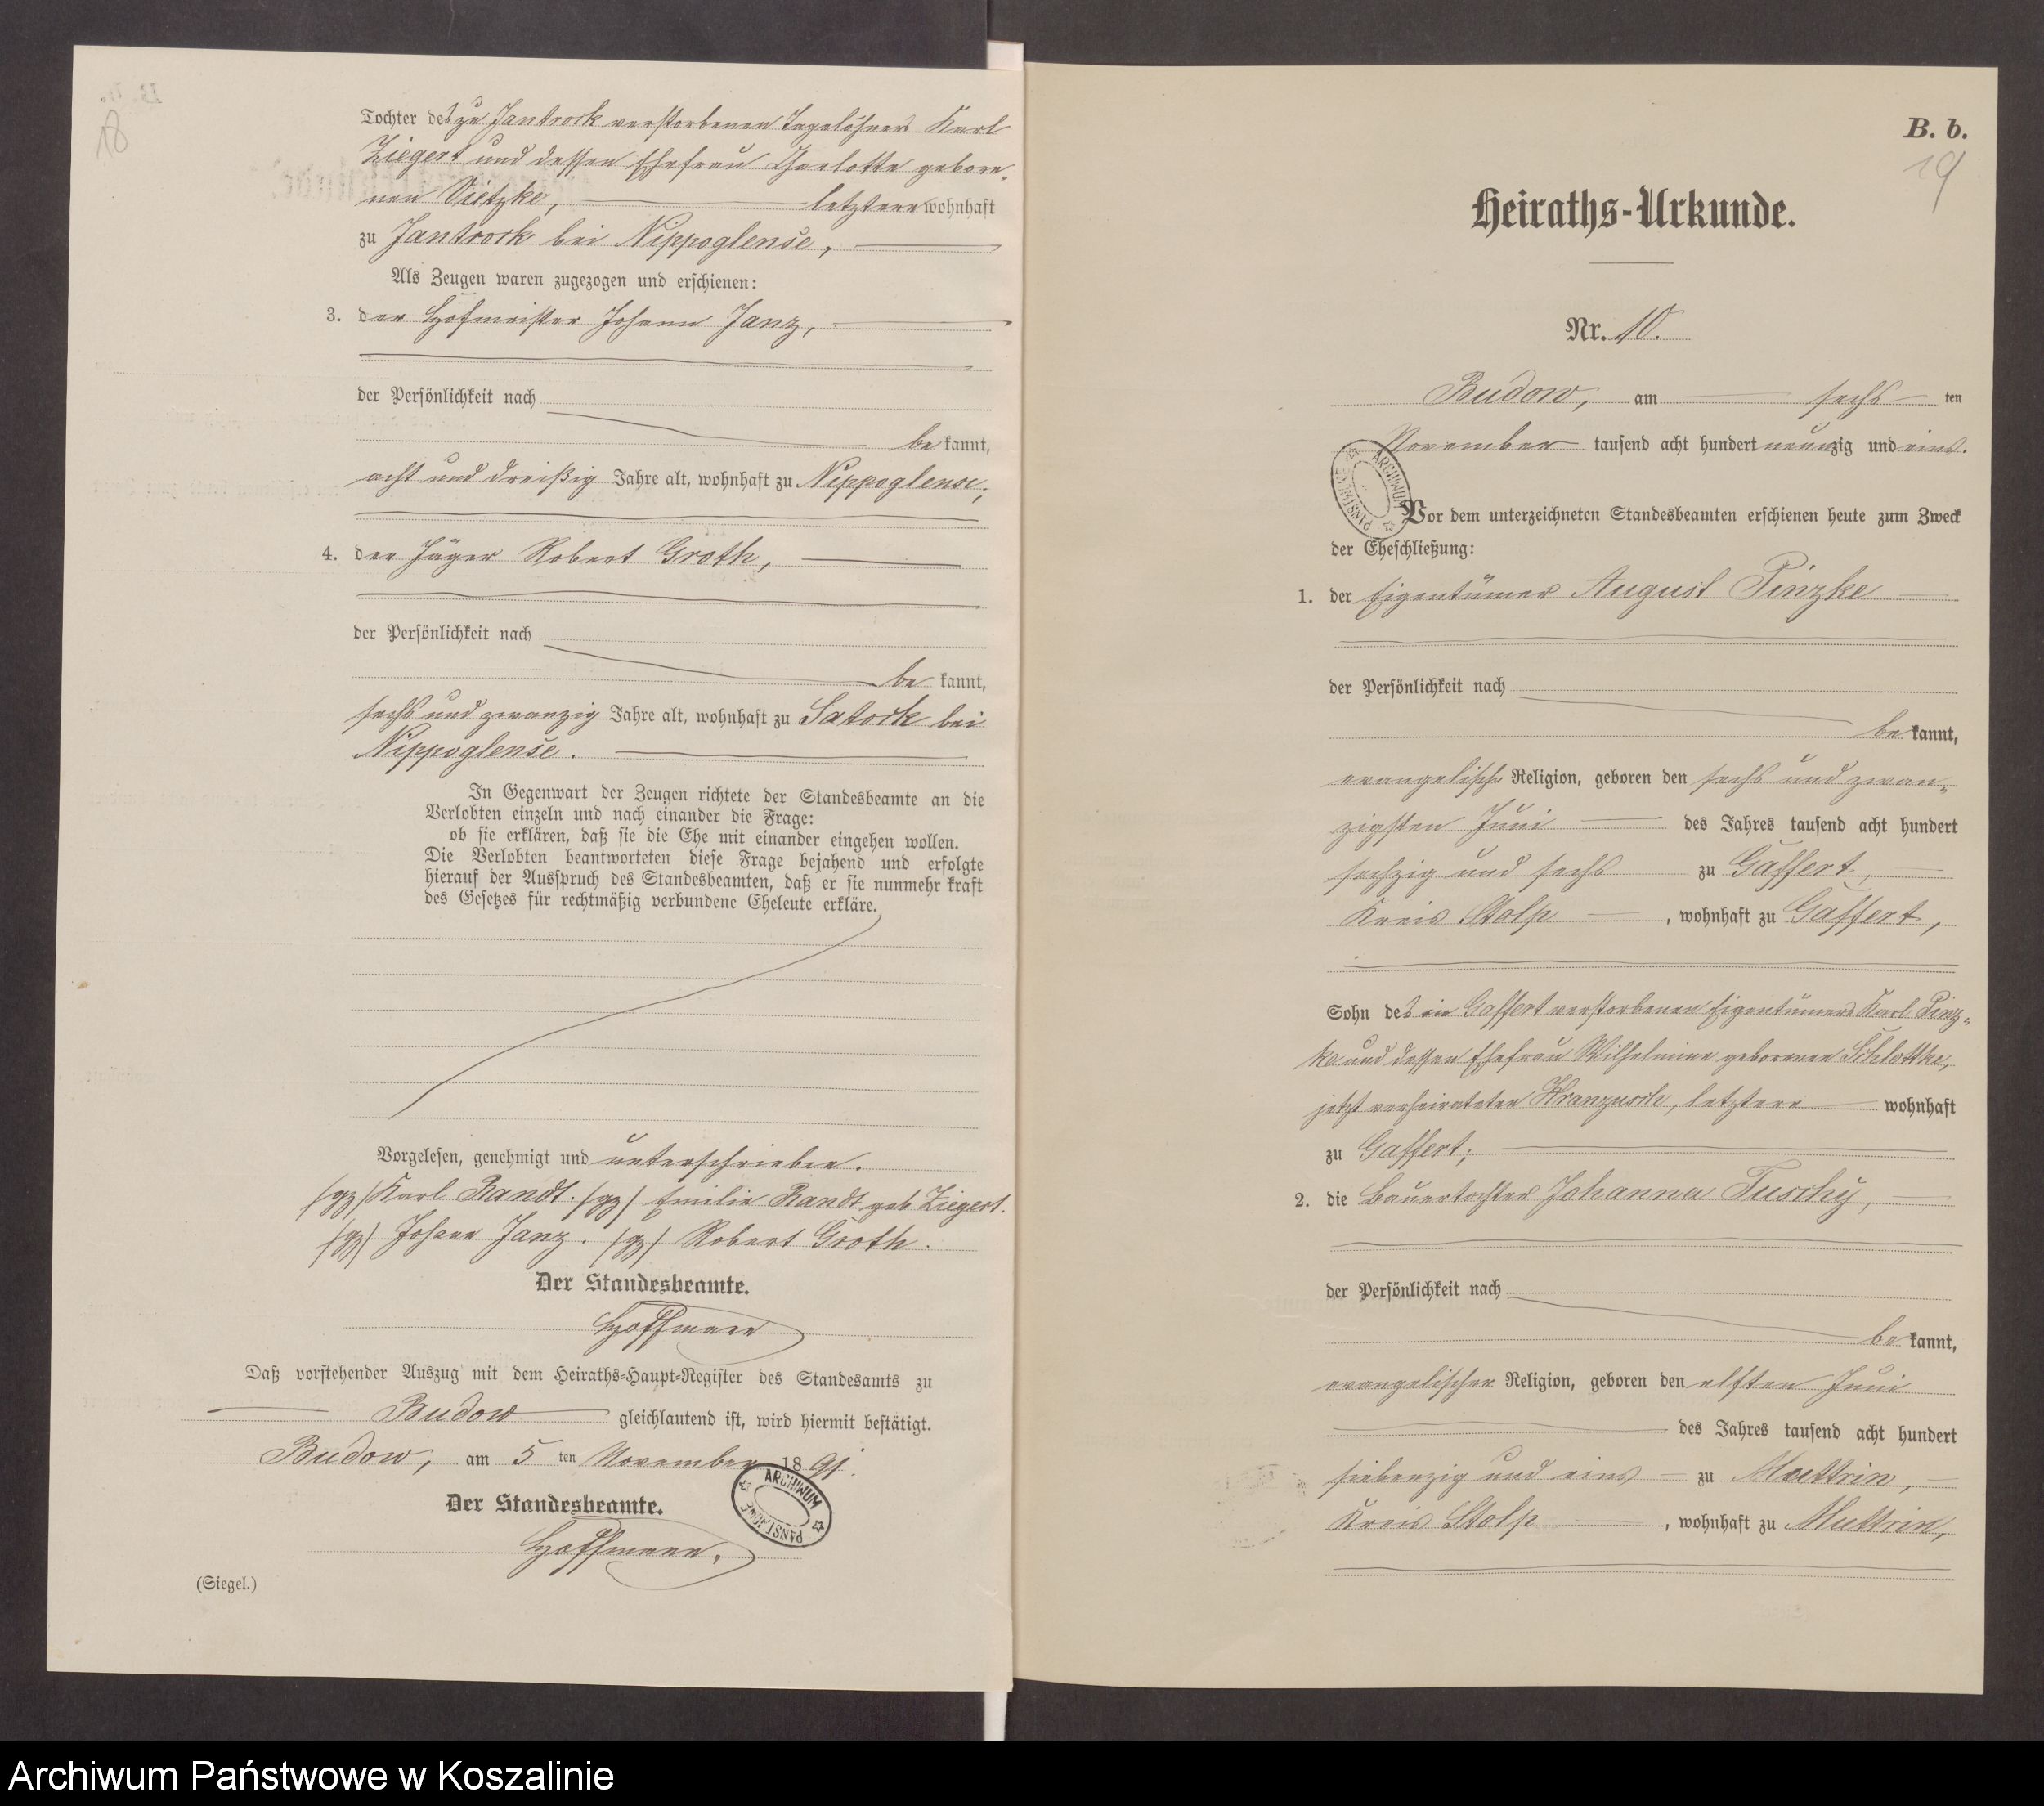 18
Tochter des zu Jantrock verstorbenen Tagelöhners Karl
Ziegert und dessen Ehefrau Charlotte gebore-
nen Vietzke, letztere wohnhaft
zu Jantrock bei Nippoglense,
Als Zeugen waren zugezogen und erschienen:
3. der Hofmeister Johann Janz,
der Persönlichkeit nach
be kannt,
acht und dreißig Jahre alt, wohnhaft zu Nippoglense;
4. der Jäger Robert Groth,
der Persönlichkeit nach
be kannt,
sechs und zwanzig Jahre alt, wohnhaft zu Satock bei
Nippoglense.
In Gegenwart der Zeugen richtete der Standesbeamte an die
Verlobten einzeln und nach einander die Frage:
ob sie erklären, daß sie die Ehe mit einander eingehen wollen.
Die Verlobten beantworteten diese Frage bejahend und erfolgte
hierauf der Ausspruch des Standesbeamten, daß er sie nunmehr kraft
des Gesetzes für rechtmäßig verbundene Eheleute erkläre.
Vorgelesen, genehmigt und unterschrieben.
(gz) Karl Randt. (gz) Emilie Randt geb Ziegert.
(gz) Johann Janz. (gz) Robert Groth.
Der Standesbeamte.
Hoffmann
Daß vorstehender Auszug mit dem Heiraths-Haupt-Register des Standesamts zu
Budow gleichlautend ist, wird hiermit bestätigt.
Budow, am 5 ten November 1891.
Der Standesbeamte.
Hoffmann.
(Siegel.)
ARCHIWUM PAŃSTWOWE
B. b.
19
Heiraths-Urkunde.
Nr. 10.
Budow, am sechs ten
November tausend acht hundert neunzig und eins.
ARCHIWUM PAŃSTWOWE
Vor dem unterzeichneten Standesbeamten erschienen heute zum Zweck
der Eheschließung:
1. der Eigentümer August Pinzke
der Persönlichkeit nach
be kannt,
evangelischer Religion, geboren den sechs und zwan-
zigsten Juni des Jahres tausend acht hundert
sechzig und sechs zu Gaffert,
Kreis Stolp, wohnhaft zu Gaffert,
Sohn des in Gaffert verstorbenen Eigentümers Karl Pinz-
ke und dessen Ehefrau Wilhelmine geborenen Schlottke,
jetzt verheirateten Kranzusch, letztere wohnhaft
zu Gaffert;
2. die Bauertochter Johanna Tuschÿ,
der Persönlichkeit nach
be kannt,
evangelischer Religion, geboren den elften Juni
des Jahres tausend acht hundert
siebenzig und eins zu Muttrin,
Kreis Stolp, wohnhaft zu Muttrin,
Archiwum Państwowe w Koszalinie